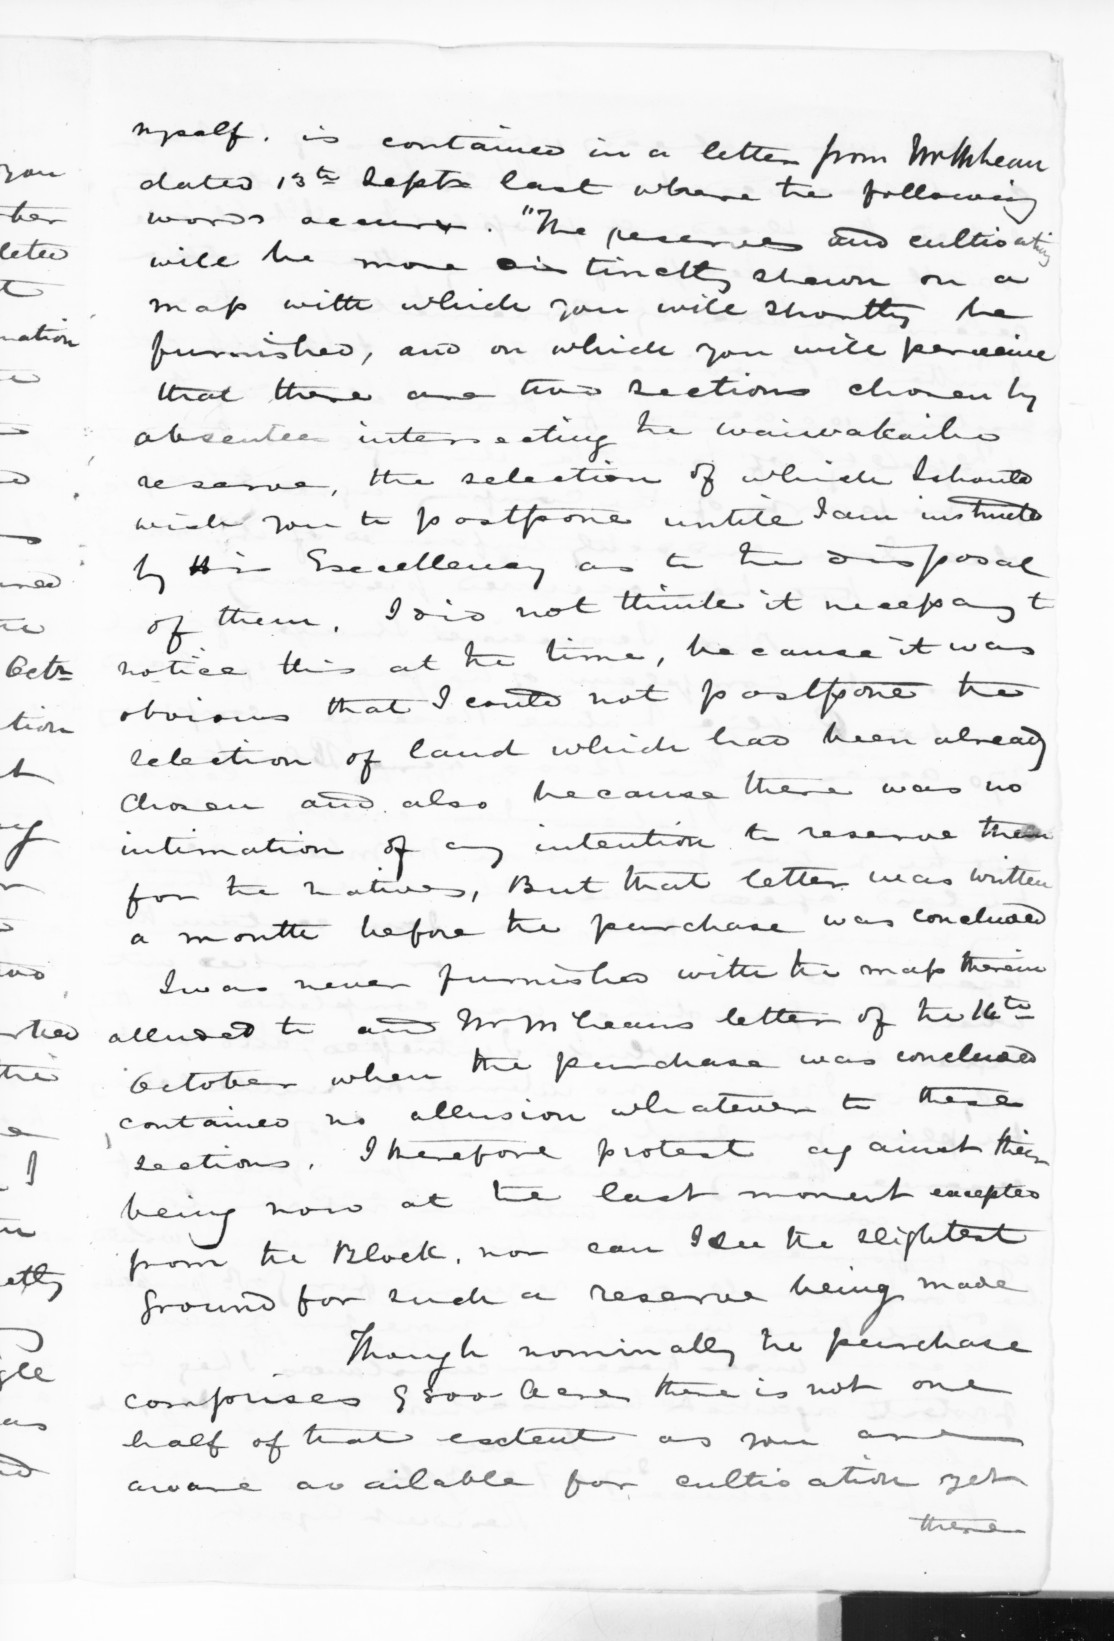 myself. is contained in a letter from Mr McLean
dated 13th Septr last where the following
words occur. "The reserves and cultivations
will be more distinctly shewn on a
map with which you will shortly be
furnished, and on which you will perceive
that there are two sections chosen by
absentees intersecting the waiwakaiho
reserve, the selection of which I should
wish you to postpone until I am instructed
by His Excellency as to the disposal
of them. I did not think it necessary to
notice this at the time, because it was
obvious that I could not postpone the
selection of land which had been already
chosen and also because there was no
intimation of any intention to reserve them
for the natives, But that letter was written
a month before the purchase was concluded
I was never furnished with the map therein
alluded to and Mr McLeans letter of the 14th
October when the purchase was concluded
contained no allusion whatever to these
sections. I therefore protest against their
being now at the last moment excepted
from the Block, nor can I see the slightest
ground for such a reserve being made
Though nominally the purchase
comprises 9800 Acres there is not one
half of that extent as you are
aware available for cultivation yet
there
you
ther
leted
nation
Octr
tion
two
their
I
gle
as